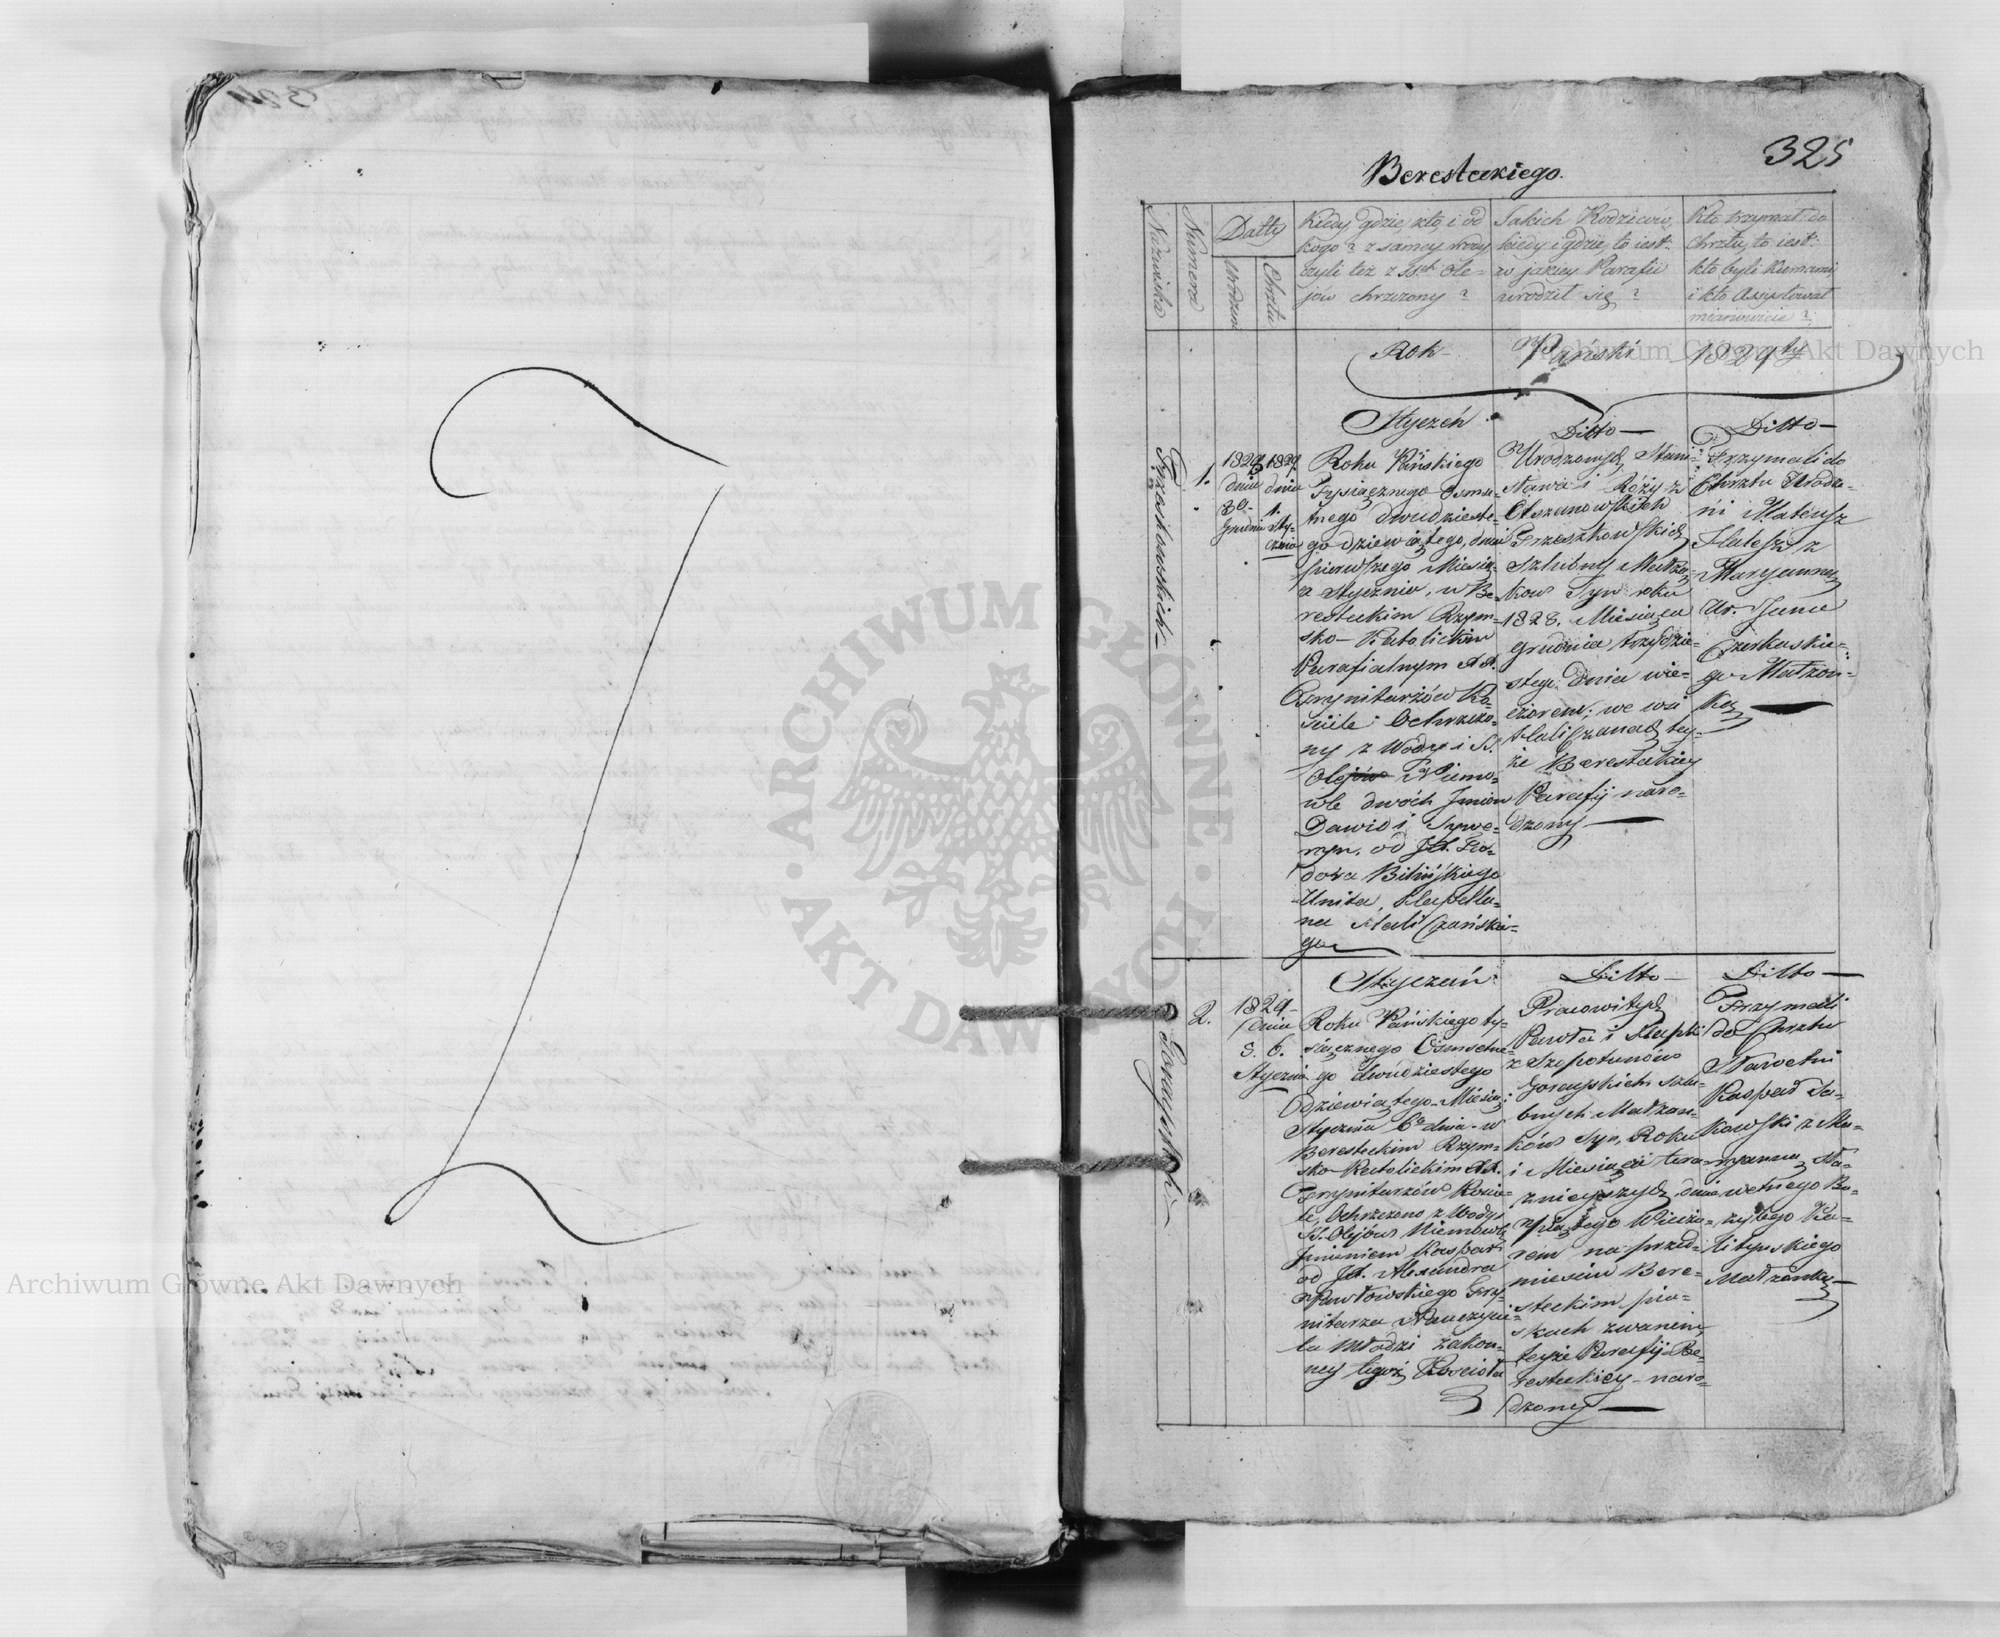 325
Beresteckiego.
Nazwiska
Numera
Datty
Urodzenia
Chrztu
Kiedy, gdzie, kto, i od
kogo? z samey wody
czyli też z SSch Ole=
jów chrzczony?
Jakich Rodziców,
kiedy i gdzie, to iest:
w jakiey Parafii
urodził się?
Kto trzymał do
Chrztu, to iest:
kto byli Kumami
i kto Assystował
mianowicie?
Rok Pański 1829ty
Trzeszkowskich
1.
1828
dnia
30
Grudnia
1829.
dnia
1.
Sty=
cznia
Styczeń
Roku Pańskiego
Tysiącznego Osmse=
tnego dwudzieste=
go dziewiątego, dnia
pierwszego Miesią=
a Stycznia, w Be=
resteckim Rzym=
sko-Katolickim
Parafialnym XX.
Trynitarzów Ko=
ściele Ochrzczo=
ny z Wody i S.
Olejów Niemo=
wle dwóch Jmion
Dawid i Sewe=
ryn, od Jx. Teo=
dora Bilińskiego
Unita, Kapella=
na Haliczańskie=
go
Ditto
Urodzonych Stani=
sława i Róży z
Olszanowskich
Trzeszkowskich
Szlubnych Małżą=
kow Syn roku
1828. Miesiąca
grudnia trzydzie=
stego dnia wie=
czorem, we wsi
Haliczanach tey=
że Beresteckiey
Parafij naro=
dzony
Ditto
Trzymali do
Chrztu Urodze=
ni Mateusz
z
Maryanną
Ur. Jana
Czerkaskie=
go Małżon=
ką
Gorayskich
2.
1829
dnia
5. 6.
Stycznia
Styczeń
Roku Pańskiego ty=
siącznego Osmsetne=
go dwudziestego
dziewiątego Miesią:
Stycznia 6o dnia w
Beresteckim Rzym=
sko Katolickim XX.
Trynitarzów Koście=
le, Ochrzczono z Wody i
S. Olejów Niemowle
Jmieniem Kasper
od Jx. Alexandra
Pawłowskiego Try=
nitarza Nauczycie=
la Młodzi zakon=
ney tegoż Kościoła
Ditto
Pracowitych
Pawła i
z Szepotunów
Gorayskich szlu=
bnych Małżon=
ków Syn, Roku
i Miesiąca tera=
znieyszych, dnia
piątego Wieczo=
rem na przed=
mieściu Bere=
steckim pia=
skach zwanem,
teyże Parafij Be=
resteckiey naro=
dzony
Ditto
Trzymali
do Chrztu
Sławetni
Kasper Sa=
kowski z Ma=
ryanną Sła=
wetnego Ba=
zylego Ka=
litynskiego
Małżonką
ARCHIWUM GŁÓWNE AKT DAWNYCH
Archiwum Główne Akt Dawnych
Archiwum Główne Akt Dawnych